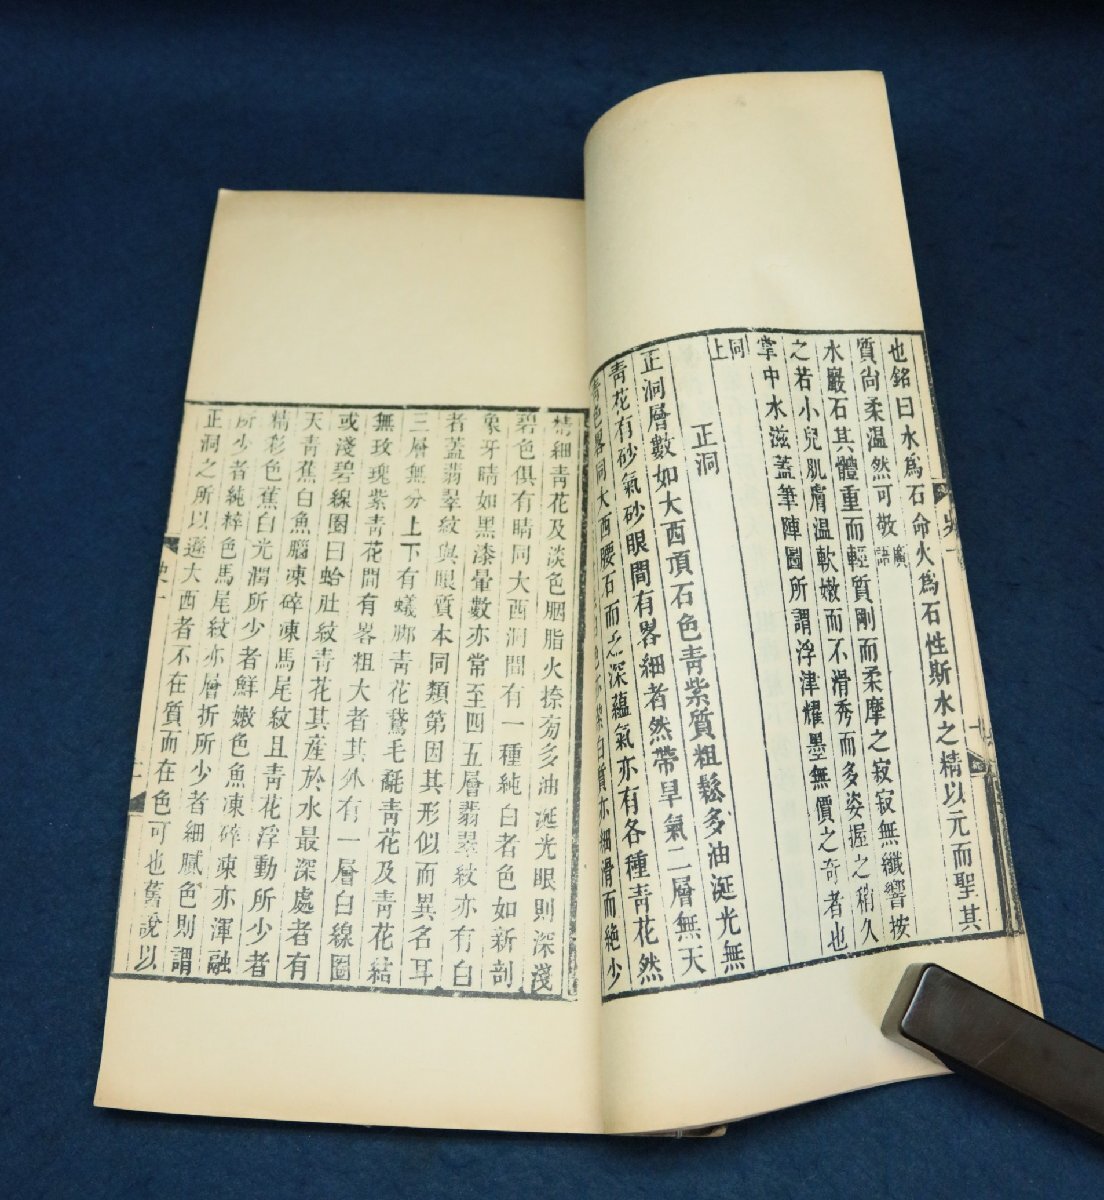 也銘曰水為石命火為石性斯水之精以元而聖其
質尙柔温然可敬
廣語
水巖石其體重而輕質剛而柔摩之寂寂無纖響按
之若小兒肌膚温軟嫩而不滑秀而多姿握之稍久
掌中水滋蓋筆陣圖所謂浮津耀墨無價之奇者也
同上
正洞
正洞層數如大西頂石色靑紫質粗鬆多油涎光無
靑花有砂氣砂眼間有畧細者然帶旱氣二層無天
靑色畧同大西腰石而乏深蘊氣亦有各種靑花然
白質亦細滑而絶少
精細靑花及淡色胭脂火捺匊多油涎光眼則深淺
碧色俱有睛同大西洞間有一種純白者色如新剖
象牙睛如黑漆暈數亦常至四五層翡翠紋亦有白
者蓋翡翠紋與眼質本同類第因其形似而異名耳
三層無分上下有蟻脚靑花鵞毛氄靑花及靑花結
無玫瑰紫靑花間有畧粗大者其外有一層白線圈
或淺碧線圈曰蛤肚紋靑花其產於水最深處者有
天靑蕉白魚腦凍碎凍馬尾紋且靑花浮動所少者
精彩色蕉白光潤所少者鮮嫩色魚凍碎凍亦渾融
所少者純粹色馬尾紋亦層折所少者細膩色則謂
正洞之所以遜大西者不在質而在色可也舊說以